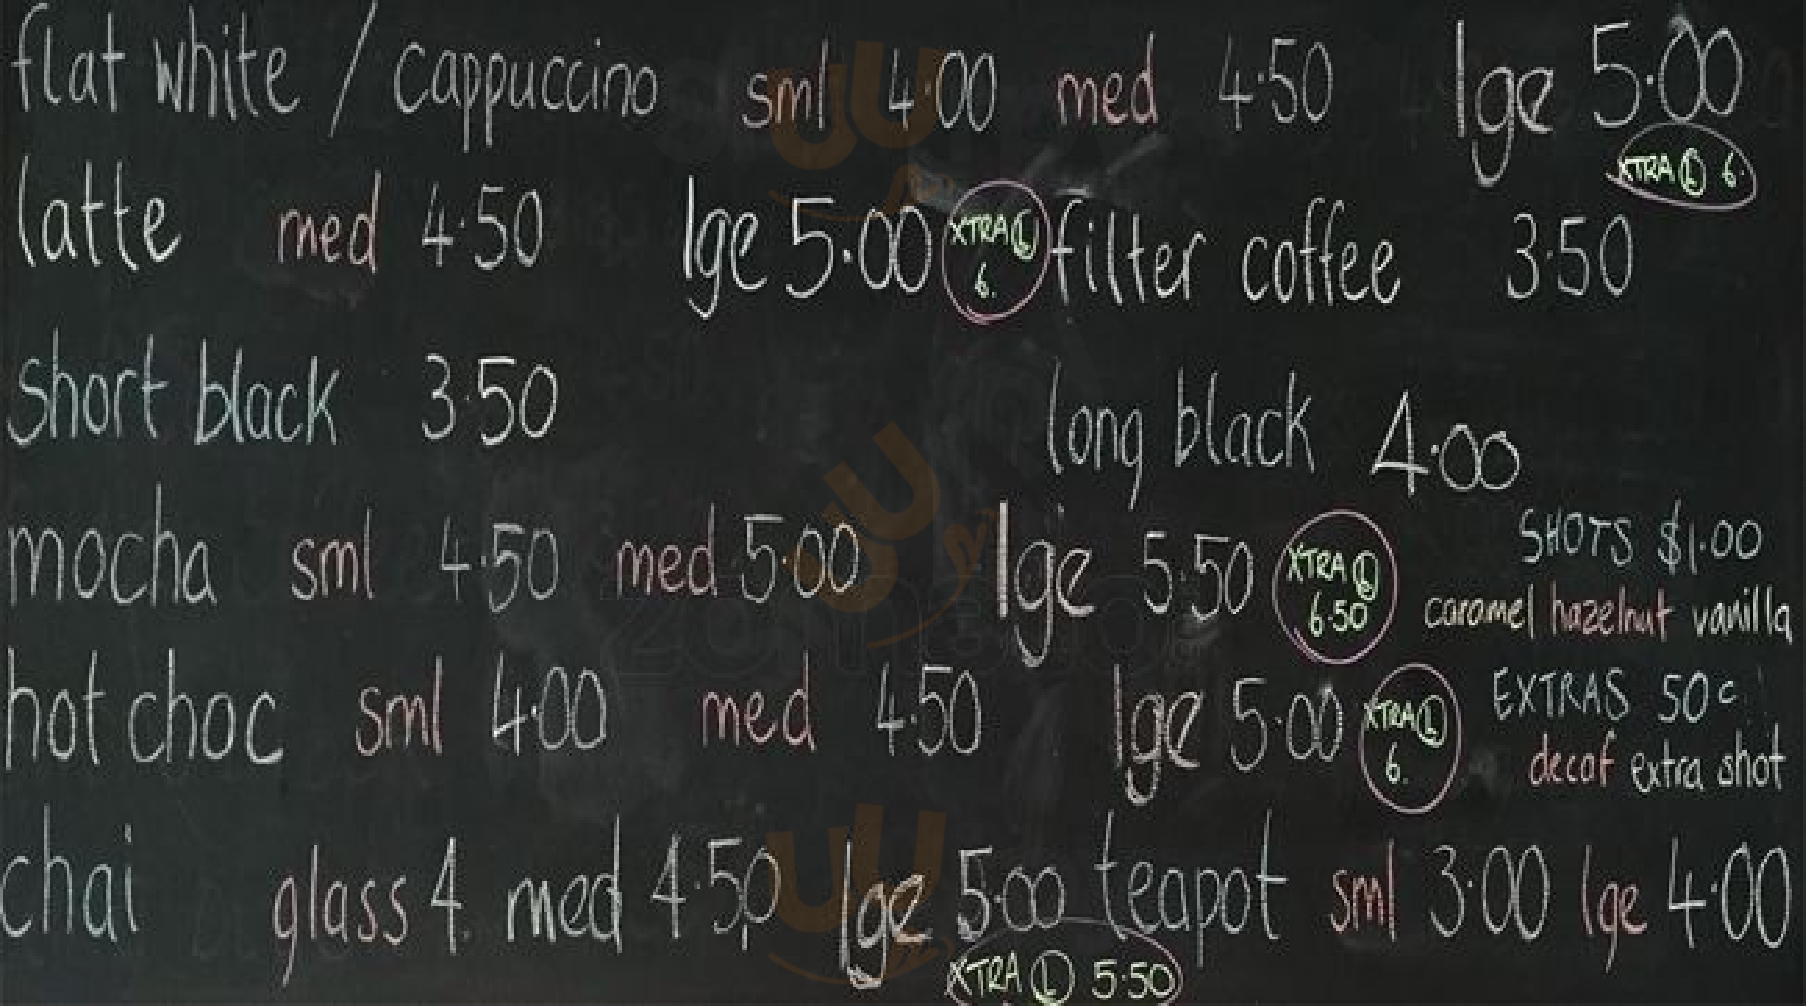 flat white / cappuccino sml 4.00 med 4.50 lge 5.00
XTRA L 6.
latte med 4.50 lge 5.00 XTRA L 6. filter coffee 3.50
short black 3.50 long black 4.00
mocha sml 4.50 med 5.00 lge 5.50 XTRA L 6.50
SHOTS $1.00
caramel hazelnut vanilla
hot choc sml 4.00 med 4.50 lge 5.00 XTRA L 6.
EXTRAS 50c
decaf extra shot
chai glass 4. med 4.50 lge 5.00 teapot sml 3.00 lge 4.00
XTRA L 5.50
zomato